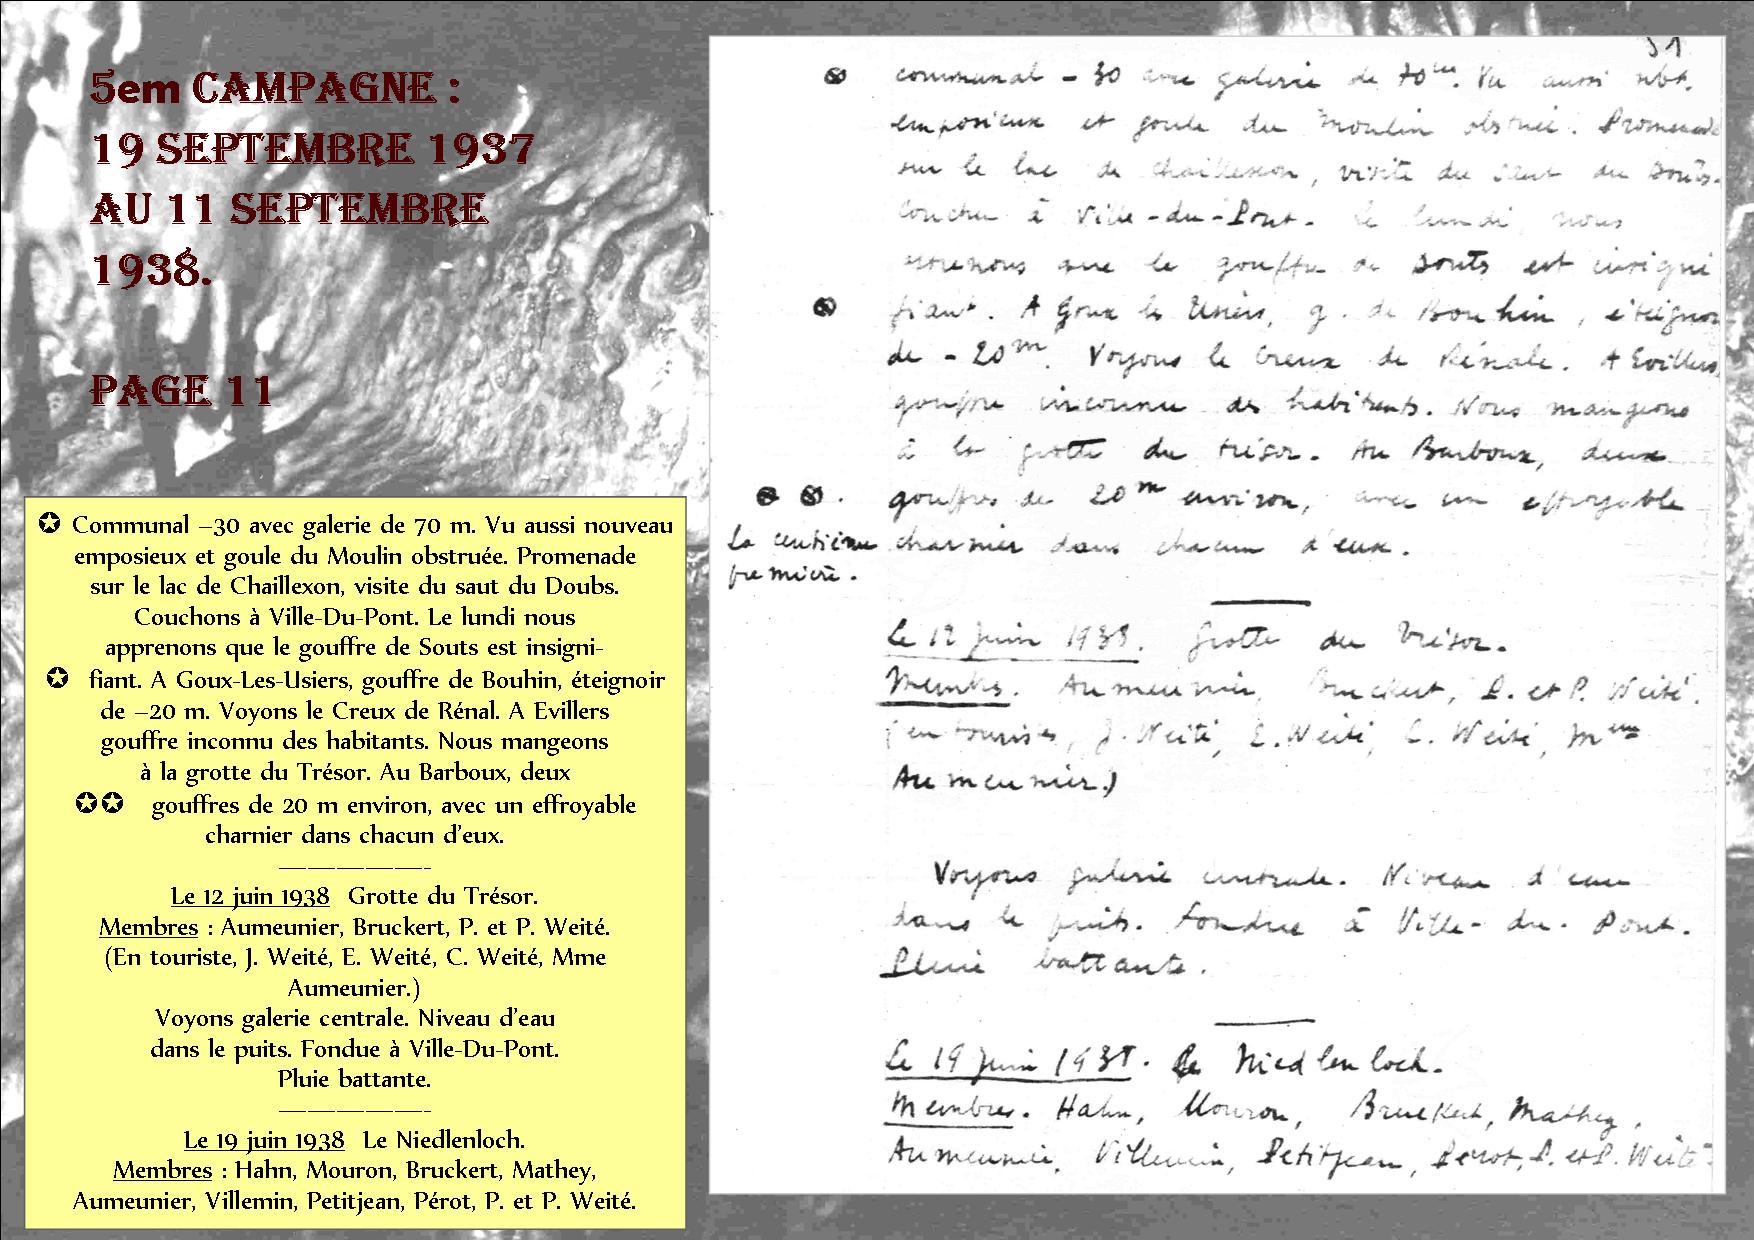 5em CAMPAGNE :
19 SEPTEMBRE 1937
AU 11 SEPTEMBRE
1938.
PAGE 11
✪ Communal –30 avec galerie de 70 m. Vu aussi nouveau
emposieux et goule du Moulin obstruée. Promenade
sur le lac de Chaillexon, visite du saut du Doubs.
Couchons à Ville-Du-Pont. Le lundi nous
apprenons que le gouffre de Souts est insigni-
✪ fiant. A Goux-Les-Usiers, gouffre de Bouhin, éteignoir
de –20 m. Voyons le Creux de Rénal. A Evillers
gouffre inconnu des habitants. Nous mangeons
à la grotte du Trésor. Au Barboux, deux
✪✪ gouffres de 20 m environ, avec un effroyable
charnier dans chacun d'eux.
——————————-
Le 12 juin 1938 Grotte du Trésor.
Membres : Aumeunier, Bruckert, P. et P. Weité.
(En touriste, J. Weité, E. Weité, C. Weité, Mme
Aumeunier.)
Voyons galerie centrale. Niveau d'eau
dans le puits. Fondue à Ville-Du-Pont.
Pluie battante.
——————————-
Le 19 juin 1938 Le Niedlenloch.
Membres : Hahn, Mouron, Bruckert, Mathey,
Aumeunier, Villemin, Petitjean, Pérot, P. et P. Weité.
communal - 30 avec galerie de 70m. Vu aussi
emposieux et goule du Moulin obstruée. Promenade
sur le lac de Chaillexon, visite du Saut du Doubs.
Couchons à Ville-du-Pont. Le lundi nous
apprenons que le gouffre de Souts est insigni
fiant. A Goux les Usiers, g. de Bouhin, éteignoir
de - 20m. Voyons le Creux de Rénale. A Evillers,
gouffre inconnu des habitants. Nous mangeons
à la grotte du trésor. Au Barboux, deux
gouffres de 20m environ, avec un effroyable
La centième charnier dans chacun d'eux.
première.
Le 12 Juin 1938. Grotte du Trésor.
Membres. Aumeunier, Bruckert, P. et P. Weité.
(en touristes, J. Weité, E. Weité, C. Weité, Mme
Aumeunier.)
Voyons galerie centrale. Niveau d'eau
dans le puits. Fondue à Ville-du-Pont.
Pluie battante.
Le 19 Juin 1938. Le Niedlenloch.
Membres. Hahn, Mouron, Bruckert, Mathey,
Aumeunier, Villemin, Petitjean, Perot, P. et P. Weité.